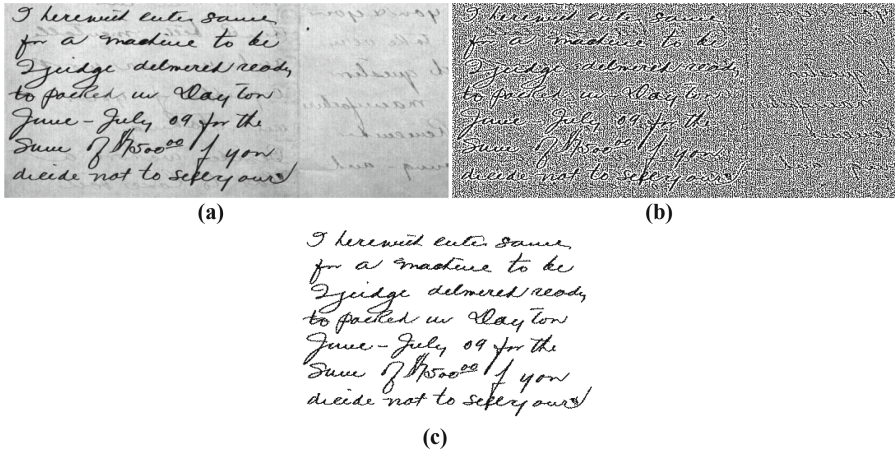 I herewith enter same
for a machine to be
I judge delivered ready
to packed in Dayton
June - July 09 for the
Sum of $7500⁰⁰ if you
dicide not to sell yours
(a)
I herewith enter same
for a machine to be
I judge delivered ready
to packed in Dayton
June - July 09 for the
Sum of $7500⁰⁰ if you
dicide not to sell yours
(b)
I herewith enter same
for a machine to be
I judge delivered ready
to packed in Dayton
June - July 09 for the
Sum of $7500⁰⁰ if you
dicide not to sell yours
(c)